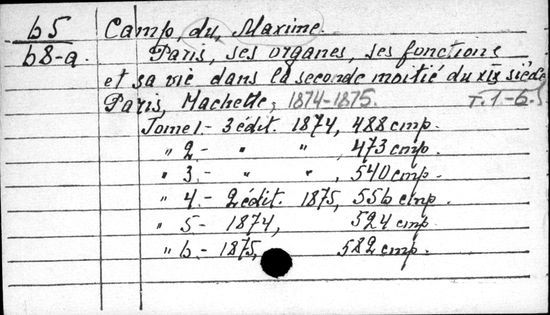 б5
б8-a.
Camp, du, Maxime.
Paris, ses organes, ses fonctions
et sa vie dans la seconde moitié du XIX siècle
Paris, Hachette, 1874-1875. т. 1-6.
Tome 1.- 3 édit. 1874, 488 стр.
" 2.- " " , 473 стр.
" 3.- " " , 540 стр.
" 4.- 2 édit. 1875, 556 стр.
" 5- 1874, 524 стр.
" 6.- 1875, 582 стр.